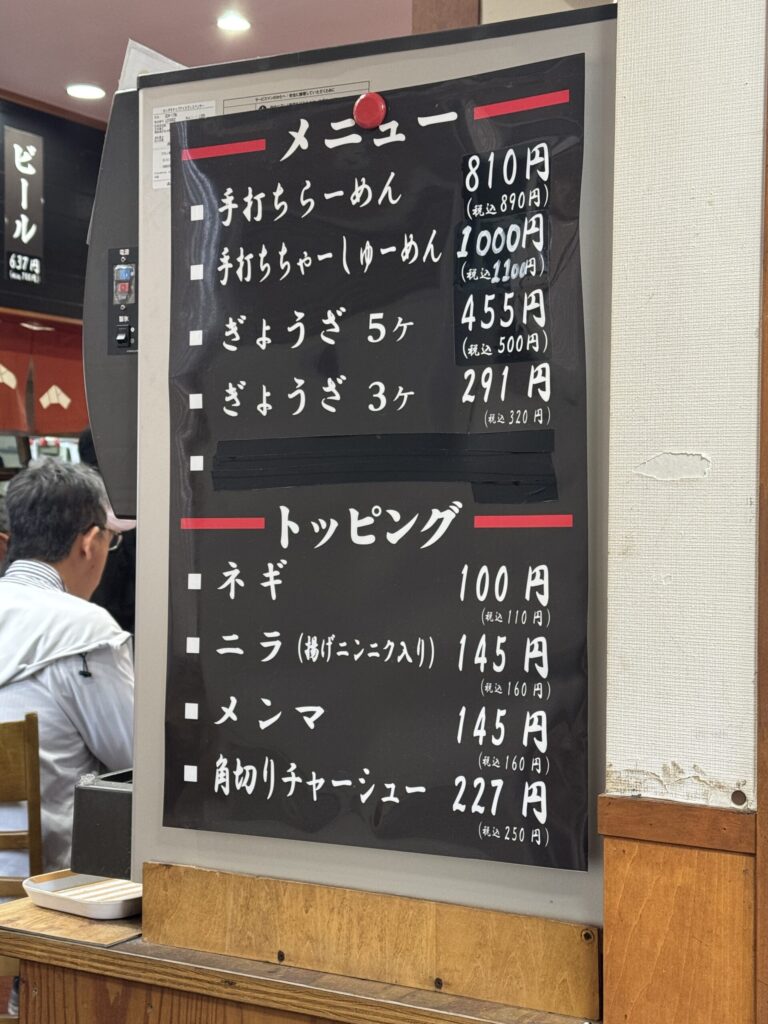 メニュー
手打ちらーめん 810円
(税込890円)
手打ちちゃーしゅーめん 1000円
(税込1100円)
ぎょうざ 5ヶ 455円
(税込500円)
ぎょうざ 3ヶ 291円
(税込320円)
トッピング
ネギ 100円
(税込110円)
ニラ(揚げニンニク入り) 145円
(税込160円)
メンマ 145円
(税込160円)
角切りチャーシュー 227円
(税込250円)
ビール
637円